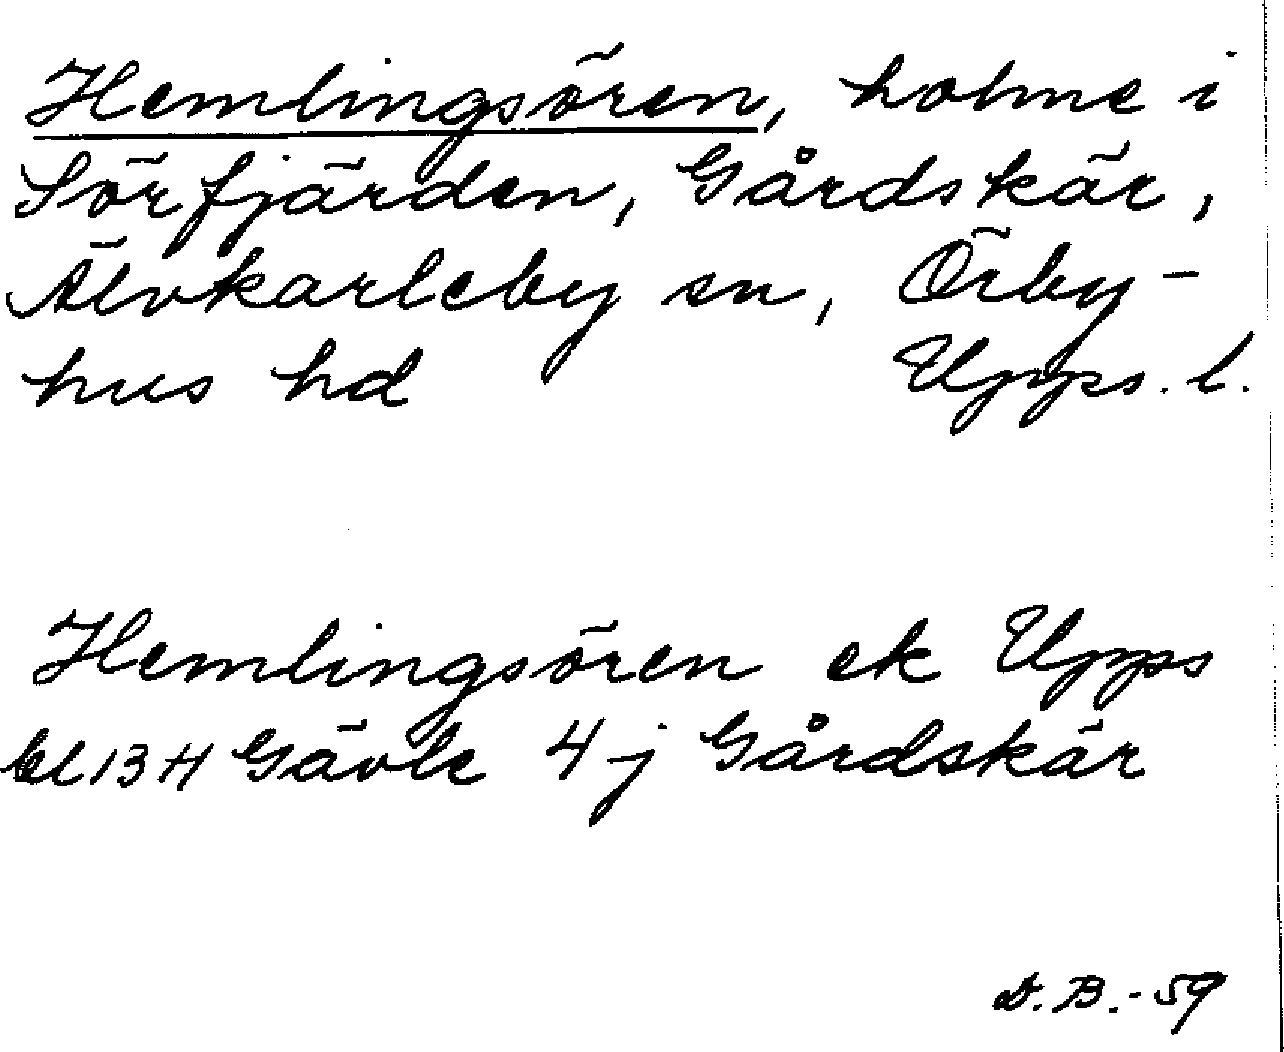 Hemlingsören, holme i
Sörfjärden, Gårdskär,
Älvkarleby sn, Örby-
hus hd Upps. l.
Hemlingsören ek Upps
bl 13 H Gävle 4 j Gårdskär
D. B. - 59